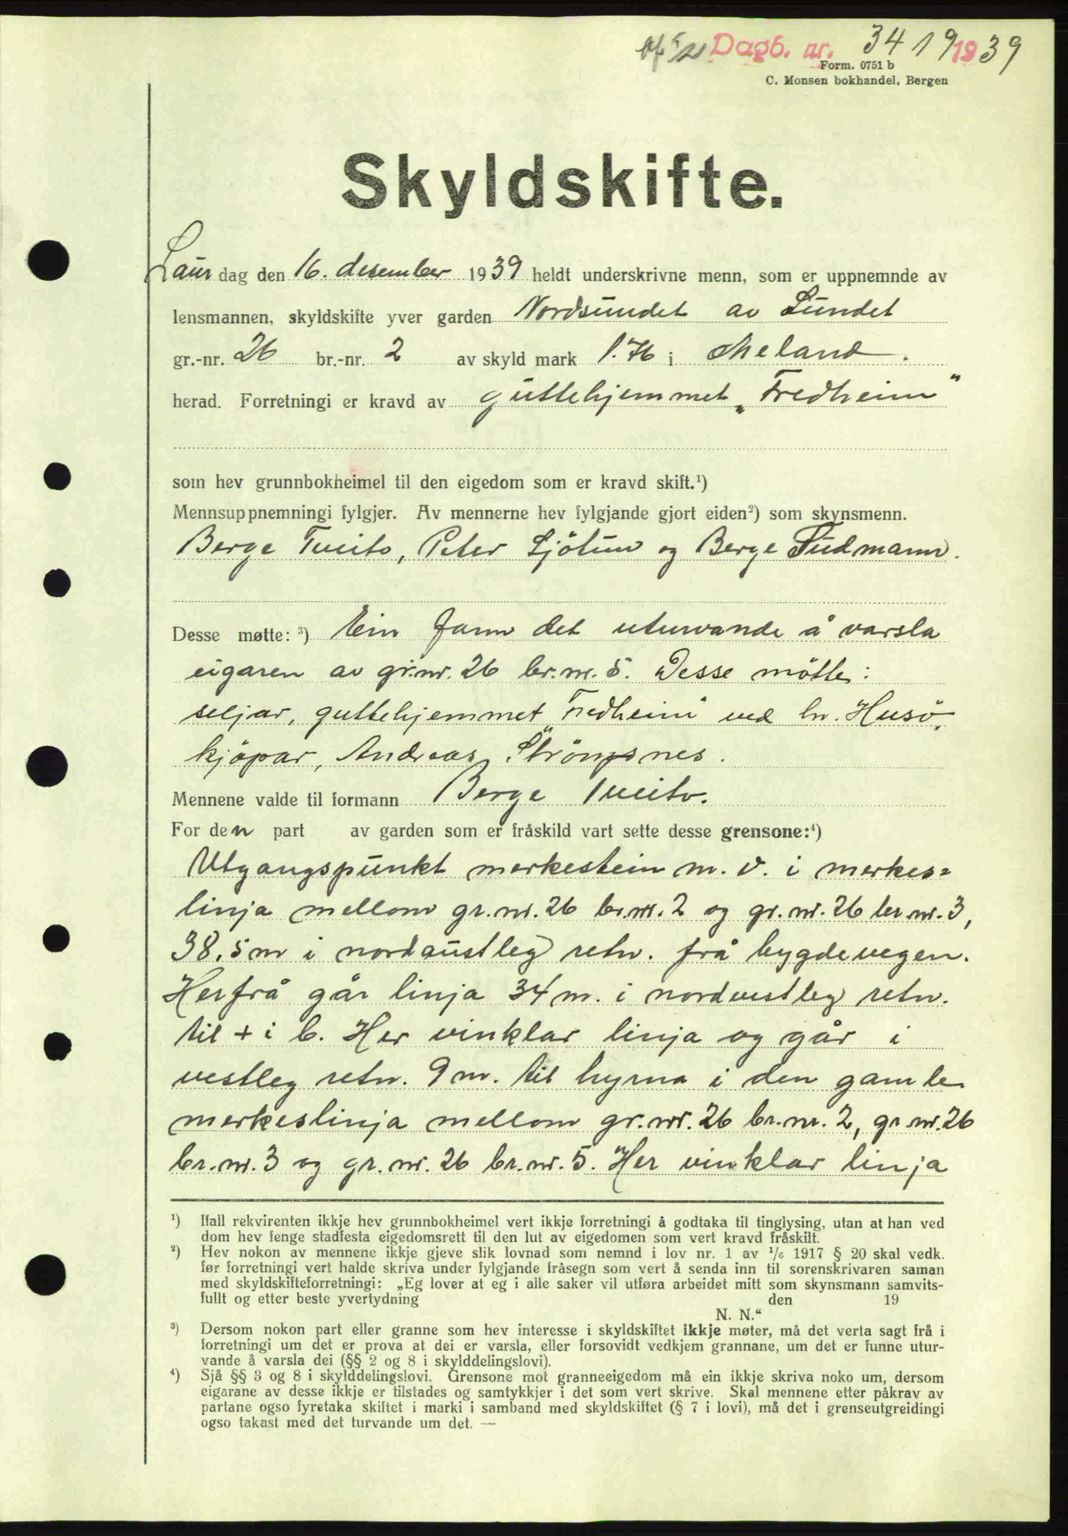 Dagb. nr. 3419 1939
Form. 0751 b
C. Monsen bokhandel, Bergen
Skyldskifte.
Laur dag den 16. desember 1939 heldt underskrivne menn, som er uppnemnde av
lensmannen, skyldskifte yver garden Nordsundet av Sundet
gr.-nr. 26 br.-nr. 2 av skyld mark 1.76 i Meland.
herad. Forretningi er kravd av guttehjemmet „Fredheim“
som hev grunnbokheimel til den eigedom som er kravd skift.¹)
Mennsuppnemningi fylgjer. Av mennerne hev fylgjande gjort eiden²) som skynsmenn.
Berge Tveito, Peter Sjötun og Berge Fudmann.
Desse møtte: ³) Ein fann det uturvande å varsla
eigaren av gr.nr. 26 br.nr. 5. Desse mötte:
seljar, guttehjemmet „Fredheim“ ved hr. Husö,
kjöpar, Andreas Strömsnes.
Mennene valde til formann Berge Tveito.
For den part av garden som er fråskild vart sette desse grensone:⁴)
Utgangspunkt merkestein m. v. i merkes=
linja mellom gr.nr. 26 br.nr. 2 og gr.nr. 26 br.nr. 3,
38,5 m i nordaustleg retn. frå bygdevegen.
Herfrå går linja 34 m. i nordvestleg retn.
til + i b. Her vinklar linja og går i
vestleg retn. 9 m. til hyrna i den gamle
merkeslinja mellom gr.nr. 26 br.nr. 2, gr.nr. 26
br.nr. 3 og gr.nr. 26 br.nr. 5. Her vinklar linja
¹) Ifall rekvirenten ikkje hev grunnbokheimel vert ikkje forretningi å godtaka til tinglysing, utan at han ved
dom hev fenge stadfesta eigedomsrett til den lut av eigedomen som vert kravd fråskilt.
²) Hev nokon av mennene ikkje gjeve slik lovnad som nemnd i lov nr. 1 av 1/6 1917 § 20 skal vedk.
før forretningi vert halde skriva under fylgjande fråsegn som vert å senda inn til sorenskrivaren saman
med skyldskifteforretningi: „Eg lover at eg i alle saker vil utføra arbeidet mitt som skynsmann samvits-
fullt og etter beste yvertydning den 19
N. N.“
³) Dersom nokon part eller granne som hev interesse i skyldskiftet ikkje møter, må det verta sagt frå i
forretningi um det er prova at dei er varsla, eller forsovidt vedkjem grannane, um det er funne utur-
vande å varsla dei (§§ 2 og 8 i skylddelingslovi).
⁴) Sjå §§ 3 og 8 i skylddelingslovi. Grensone mot granneeigedom må ein ikkje skriva noko um, dersom
eigarane av desse ikkje er tilstades og samtykkjer i det som vert skrive. Skal mennene etter påkrav av
partane ogso fyretaka skiftet i marki i samband med skyldskiftet (§ 7 i lovi), må det i grenseutgreidingi
ogso takast med det turvande um det. —